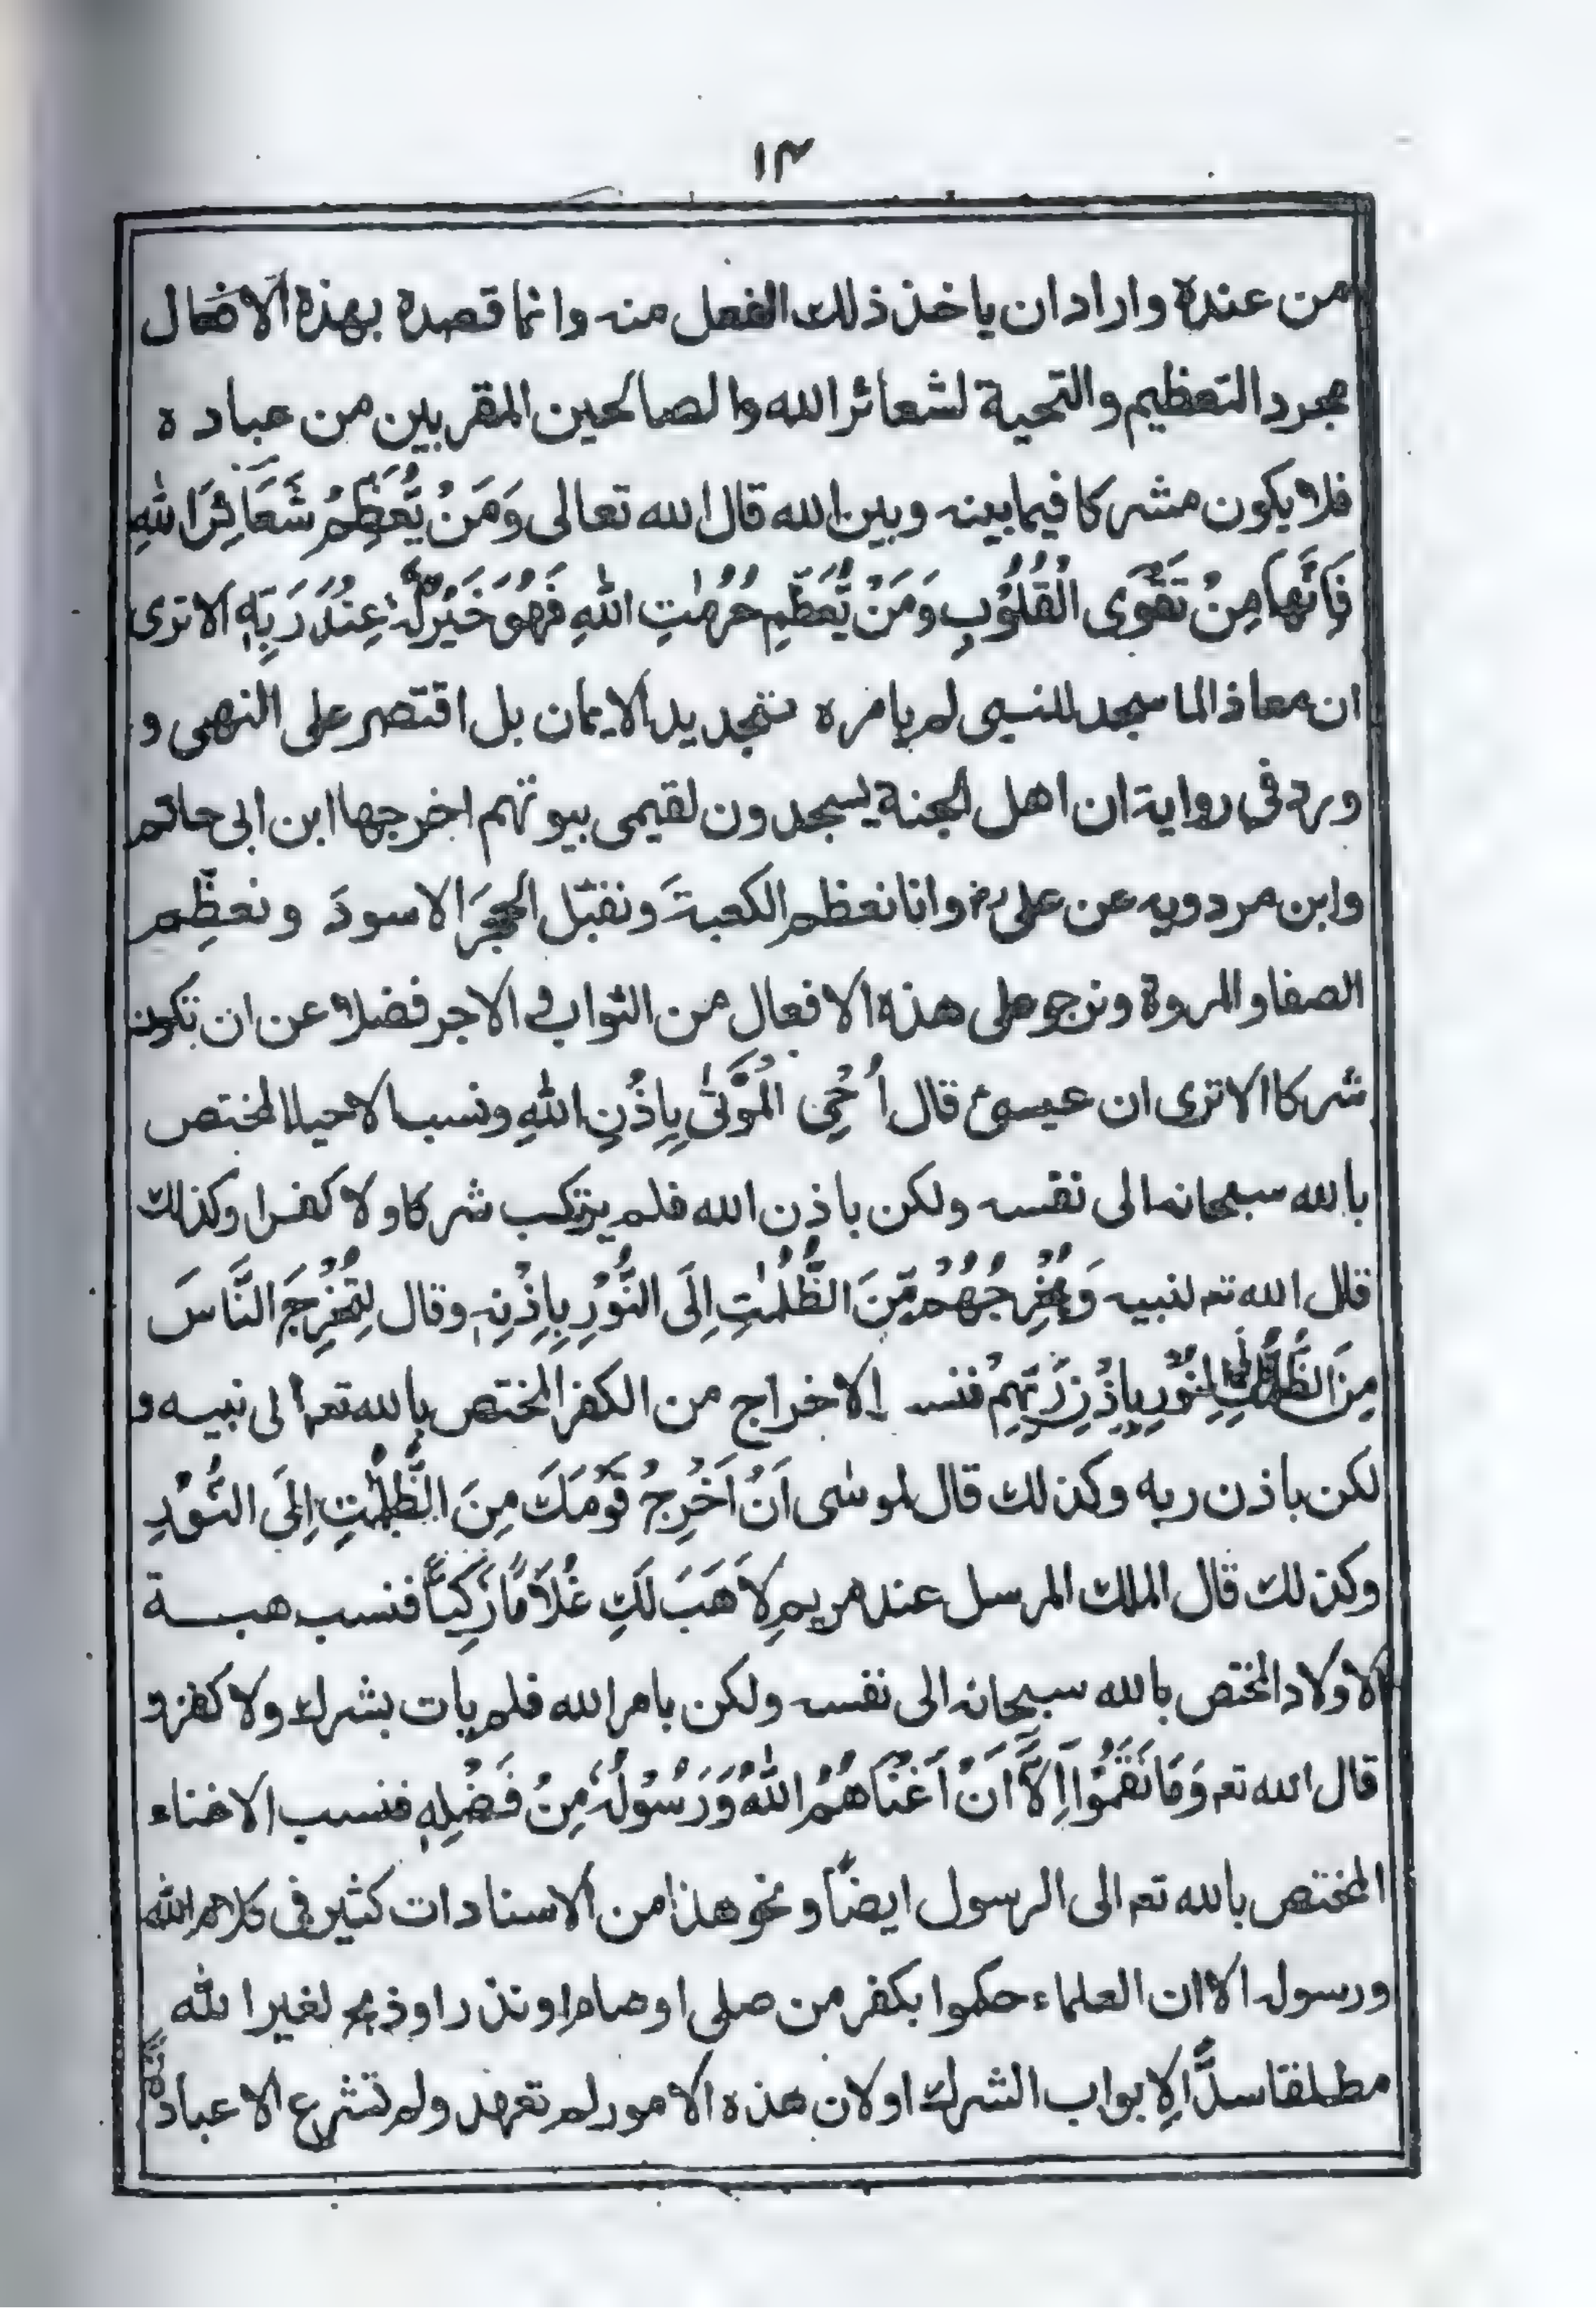 ١٣
من عنده واراد ان ياخذ ذلك الفعل منه وانما قصده بهذه الافعال
مجرد التعظيم والتحية لشعائر الله والصالحين المقربين من عباده
فلا يكون مشركا فيما بينه وبين الله قال الله تعالى وَمَنْ يُّعَظِّمْ شَعَآئِرَ اللهِ
فَاِنَّهَا مِنْ تَقْوَى الْقُلُوْبِ وَمَنْ يُّعَظِّمْ حُرُمٰتِ اللهِ فَهُوَ خَيْرٌ لَّهٗ عِنْدَ رَبِّهٖ الا ترى
ان معاذ الما سجد للنبى لم يامره بتجديد الايمان بل اقتصر على النهى و
ورد فى رواية ان اهل الجنة يسجدون لقيمى بيوتهم اخرجها ابن ابى حاتم
وابن مردويه عن على رض وانا نعظم الكعبةَ ونقبّل الحجرَ الاسودَ ونعظِّم
الصفا والمروة ونرجو على هذه الافعال من الثواب فى الاجر فضلا عن ان تكون
شركا الا ترى ان عيسىؑ قال اُحْىِ الْمَوْتٰى بِاِذْنِ اللهِ ونسب الاحيا المختص
بالله سبحانه الى نفسه ولكن باذن الله فلم يرتكب شركا ولا كفرا وكذلك
قال الله تعـ لنبيه وَيُخْرِجُهُمْ مِّنَ الظُّلُمٰتِ اِلَى النُّوْرِ بِاِذْنِهٖ وقال لِتُخْرِجَ النَّاسَ
مِنَ الظُّلُمٰتِ اِلَى النُّوْرِ بِاِذْنِ رَبِّهِمْ فنسب الاخراج من الكفر المختص بالله تعـ الى نبيه و
لكن باذن ربه وكذلك قال لموسٰى اَنْ اَخْرِجْ قَوْمَكَ مِنَ الظُّلُمٰتِ اِلَى النُّوْرِ
وكذلك قال الملك المرسل عند مريم لِاَهَبَ لَكِ غُلَامًا زَكِيًّا فنسب هبــة
الاولاد المختص بالله سبحانه الى نفسه ولكن بامر الله فلم يات بشرك ولا كفر و
قال الله تعـ وَمَا نَقَمُوْا اِلَّآ اَنْ اَغْنَاهُمُ اللهُ وَرَسُوْلُهٗ مِنْ فَضْلِهٖ فنسب الاغناء
المختص بالله تعـ الى الرسول ايضًا ونحو هذا من الاسنادات كثير فى كلام الله
ورسوله الا ان العلماء حكموا بكفر من صلى او صام او نذر او ذبح لغير الله
مطلقا سدًّا لِابواب الشرك او لان هذه الامور لم تعهد ولم تشرع الا عبادة